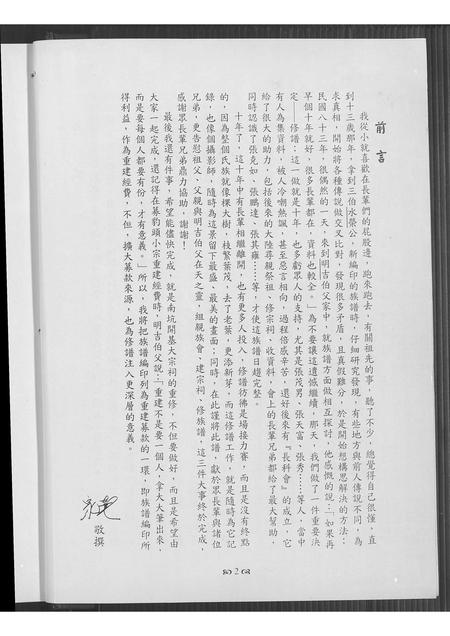 前言
我從小就喜歡在長輩們的屁股邊，跑來跑去，有關祖先的事，聽了不少，總覺得自己很懂，直
到十三歲那年，拿到三伯水榮公，新編印的族譜時，仔細研究發現，有些地方與前人傳說不同，為
求真相，開始將各種傳說做交叉比對，發現很多矛盾，且真假難分，於是開始想構思解決的方法；
民國八十三年，很偶然的一天，來到明吉伯父家中，就族譜方面做相互探討，他感慨的說：「如果再
早個十年就好，很多長輩都在，資料也較全。」為不要讓這遺憾繼續，那天，我們做了一件重要決
定—修譜，這一做就是十年，也多虧眾人的支持，尤其是張茂男、張天富、張秀……等人，當中
有人為集資料，被人冷嘲熱諷，甚至惡言相向，過程倍感辛苦，還好後來有『長科會』的成立，它
給了很大的助力，包括後來的大陸尋親祭祖、修宗祠、收資料，會上的長輩兄弟都給了最大幫助，
同時認識了張克如、張鵬達、張其雍……等，才使這族譜日趨完整。
十年了，這十年中有長輩相繼離開，也有更多人投入，修譜彷彿是場接力賽，而且是沒有終點
的，因為整個氏族就像棵大樹，枝繁葉茂，去了老葉，更添新芽，而這修譜工作，就是隨時為它記
錄，也像個攝影師，隨時為這景留下最盛、最美的畫面；同時，在此謹將此譜，獻於眾長輩與諸位
兄弟，更告慰祖父、父親與明吉伯父在天之靈，組親族會、建宗祠、修族譜，這三件大事終於完成，
感謝眾長輩兄弟鼎力協助，謝謝！
最後我還有件事，希望能儘快完成，就是南坑開基大宗祠的重修，不但要做好，而且是希望由
大家一起完成，還記得在募豹頭小宗重建經費時，明吉伯父說：「重建不是要一個人，拿大大筆出來，
而是要每個人都要有份，才有意義。」所以，我將把族譜編印列為重建募款的一環，即族譜編印所
得利益，作為重建經費，不但，擴大募款來源，也為修譜注入更深層的意義。
敬撰
2